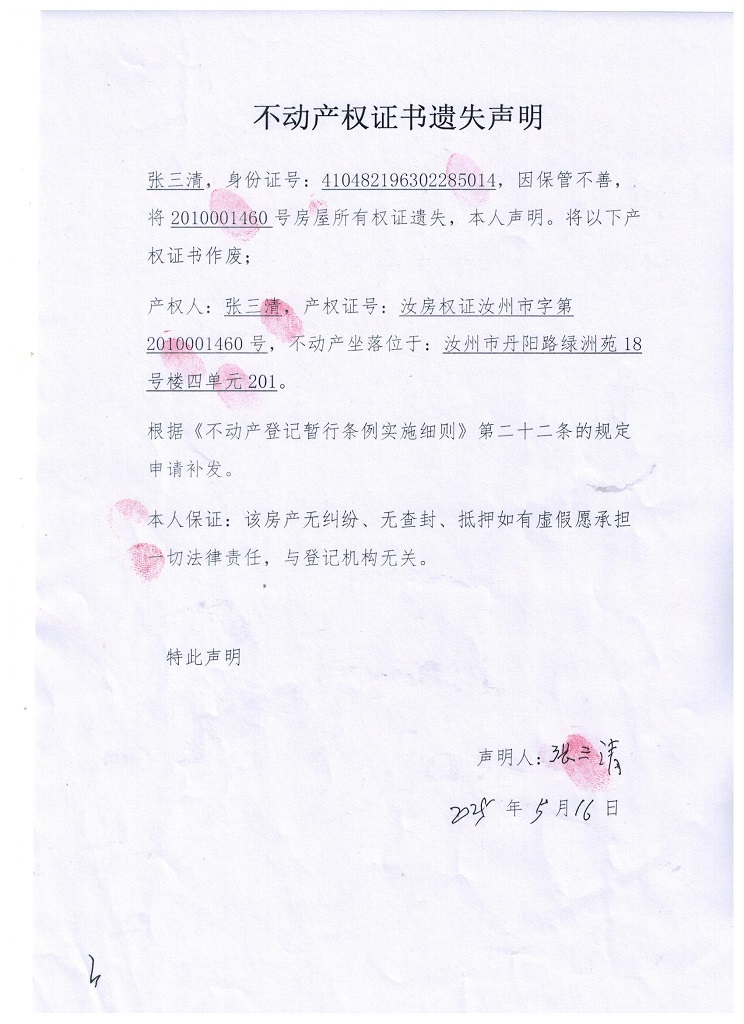 不动产权证书遗失声明
张三清，身份证号：410482196302285014，因保管不善，
将 2010001460 号房屋所有权证遗失，本人声明。将以下产
权证书作废；
产权人：张三清，产权证号：汝房权证汝州市字第
2010001460 号，不动产坐落位于：汝州市丹阳路绿洲苑 18
号楼四单元 201。
根据《不动产登记暂行条例实施细则》第二十二条的规定
申请补发。
本人保证：该房产无纠纷、无查封、抵押如有虚假愿承担
一切法律责任，与登记机构无关。
特此声明
声明人：张三清
2025 年 5 月 16 日